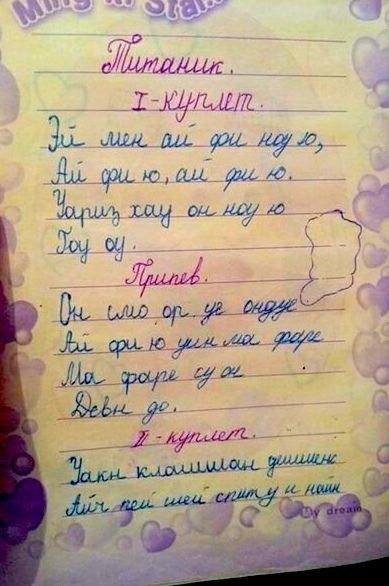 Титаник.
I-куплет.
Эй мен ай фи ноу ю,
Ай фи ю, ай фи ю.
Уариз хау он ноу ю
Гоу оу.
Припев.
Он смо ор уе ондуе
Ай фи ю уин ма фаре
Ма фаре су он
Девн до.
II-куплет.
Уакн клашишан
Айч пей шей спит у и найн
My dream